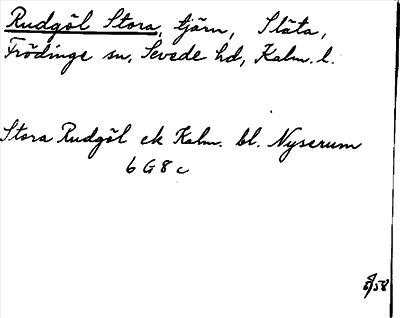 Rudgöl Stora, tjärn, Släta,
Frödinge sn, Sevede hd, Kalm. l.
Stora Rudgöl ek Kalm. bl. Nyserum
6 G 8 c